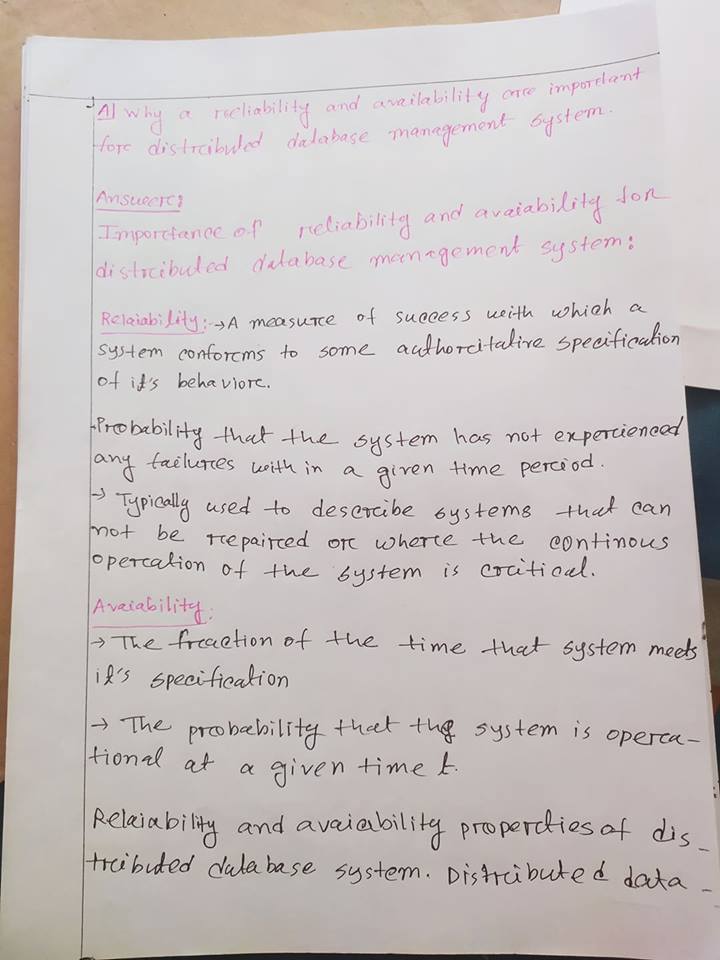 A| Why a reeliability and availability are important
fore distrcibuted database management system.
Answere:
Imporctance of reliability and avaiability for
distrcibuted database management system:
Relaiability: → A measure of success with which a
system conforcms to some authorcitative specification
of it's behaviore.
→Probability that the system has not expercienced
any failures with in a given time perciod.
→ Typically used to descrcibe systems that can
not be repaired or where the continous
opercation of the system is crcitical.
Avaiability:
→ The frcaction of the time that system meets
it's specification
→ The prcobability that the system is operca-
tional at a given time t.
Relaiability and avaiability propercties of dis-
trcibuted database system. Distrcibuted data-